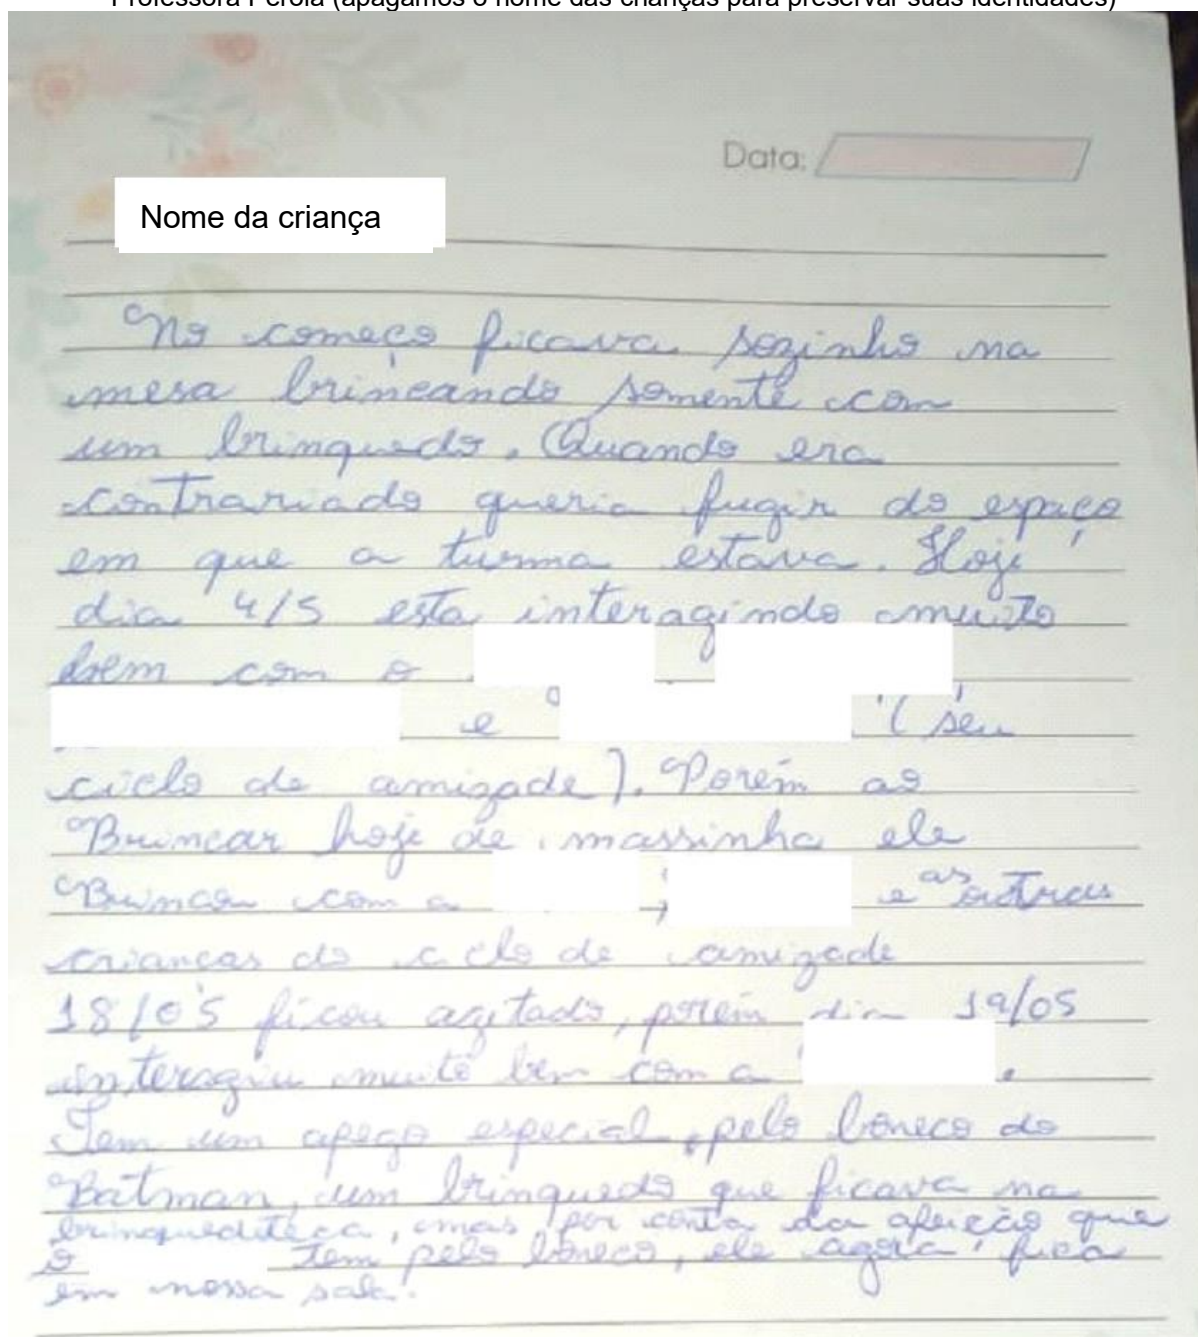 Professora Pérola (apagamos o nome das crianças para preservar suas identidades)
Data:
Nome da criança
No começo ficava sozinho na
mesa brincando somente com
um brinquedo. Quando era
contrariado queria fugir do espaço
em que a turma estava. Hoje
dia 4/5 esta interagindo muito
bem com o
e (seu
ciclo de amizade). Porém ao
Brincar hoje de massinha ele
Brincou com a , e as outras
crianças do ciclo de amizade
18/05 ficou agitado, porém dia 19/05
interagiu muito bem com a .
Tem um apego especial, pelo boneco do
Batman, um brinquedo que ficava na
brinquedoteca, mas por conta da afeição que
o tem pelo boneco, ele agora fica
em nossa sala.